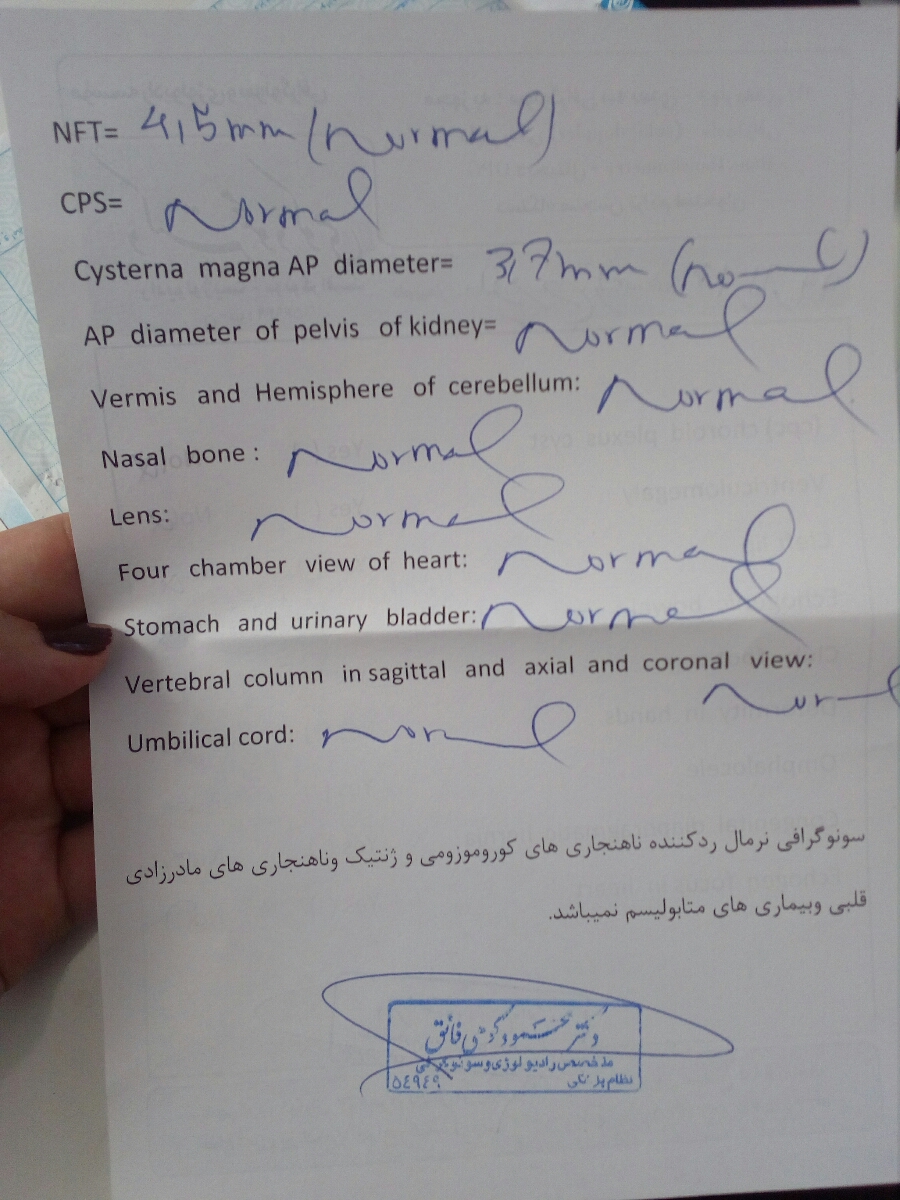 NFT= 4,5mm (normal)
CPS= Normal
Cysterna magna AP diameter= 3,7mm (no
AP diameter of pelvis of kidney= Normal
Vermis and Hemisphere of cerebellum: Normal
Nasal bone : Normal
Lens: Normal
Four chamber view of heart: Normal
Stomach and urinary bladder: Normal
Vertebral column in sagittal and axial and coronal view:
Umbilical cord:
سونوگرافی نرمال ردکننده ناهنجاری های کوروموزومی و ژنتیک وناهنجاری های مادرزادی
قلبی وبیماری های متابولیسم نمیباشد.
دکتر
متخصص رادیولوژی و سونوگرافی
نظام پزشکی ٥٤٩٤٩